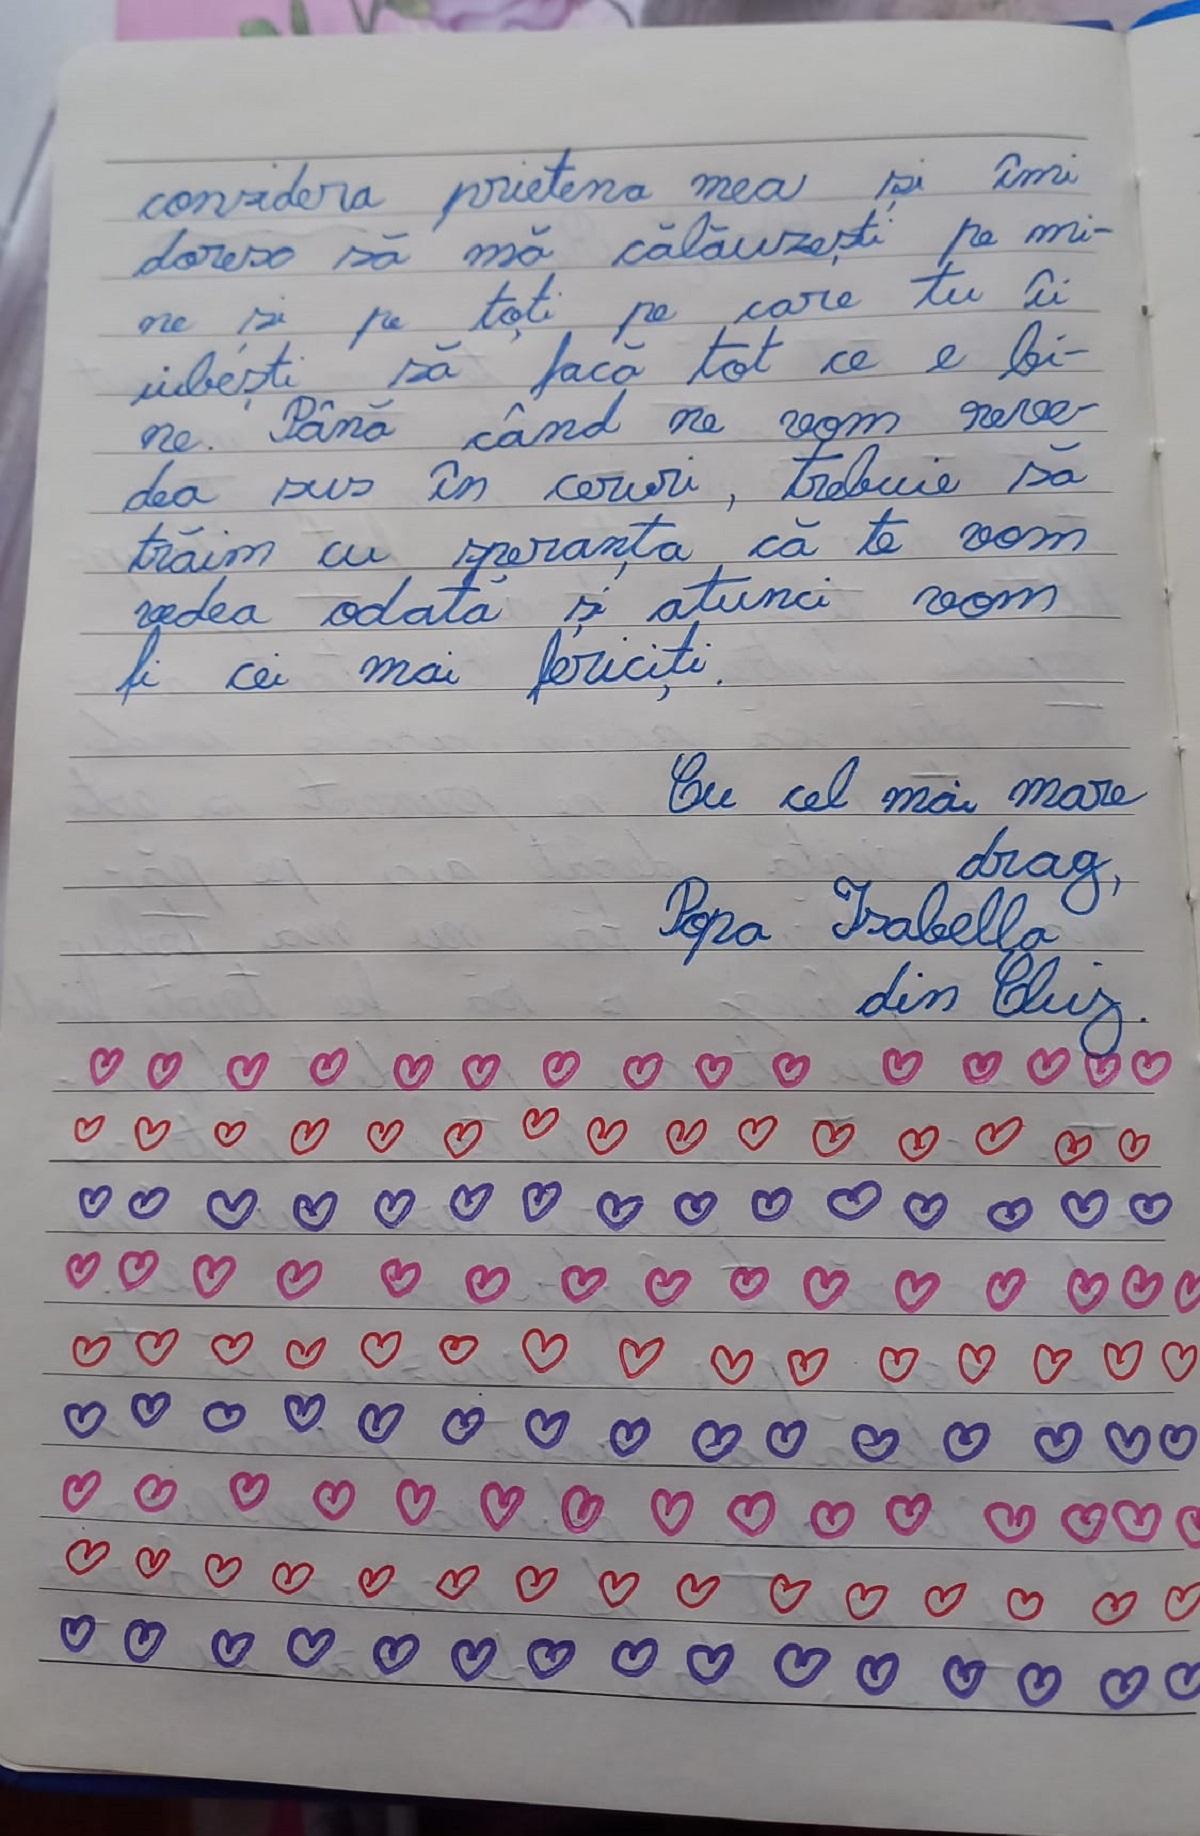 considera prietena mea și îmi
doresc să mă călăuzești pe mi-
ne și pe toți pe care tu îi
iubești să facă tot ce e bi-
ne. Până când ne vom reve-
dea sus în ceruri, trebuie să
trăim cu speranța că te vom
vedea odată și atunci vom
fi cei mai fericiți.
Cu cel mai mare
drag,
Popa Isabella
din Cluj.